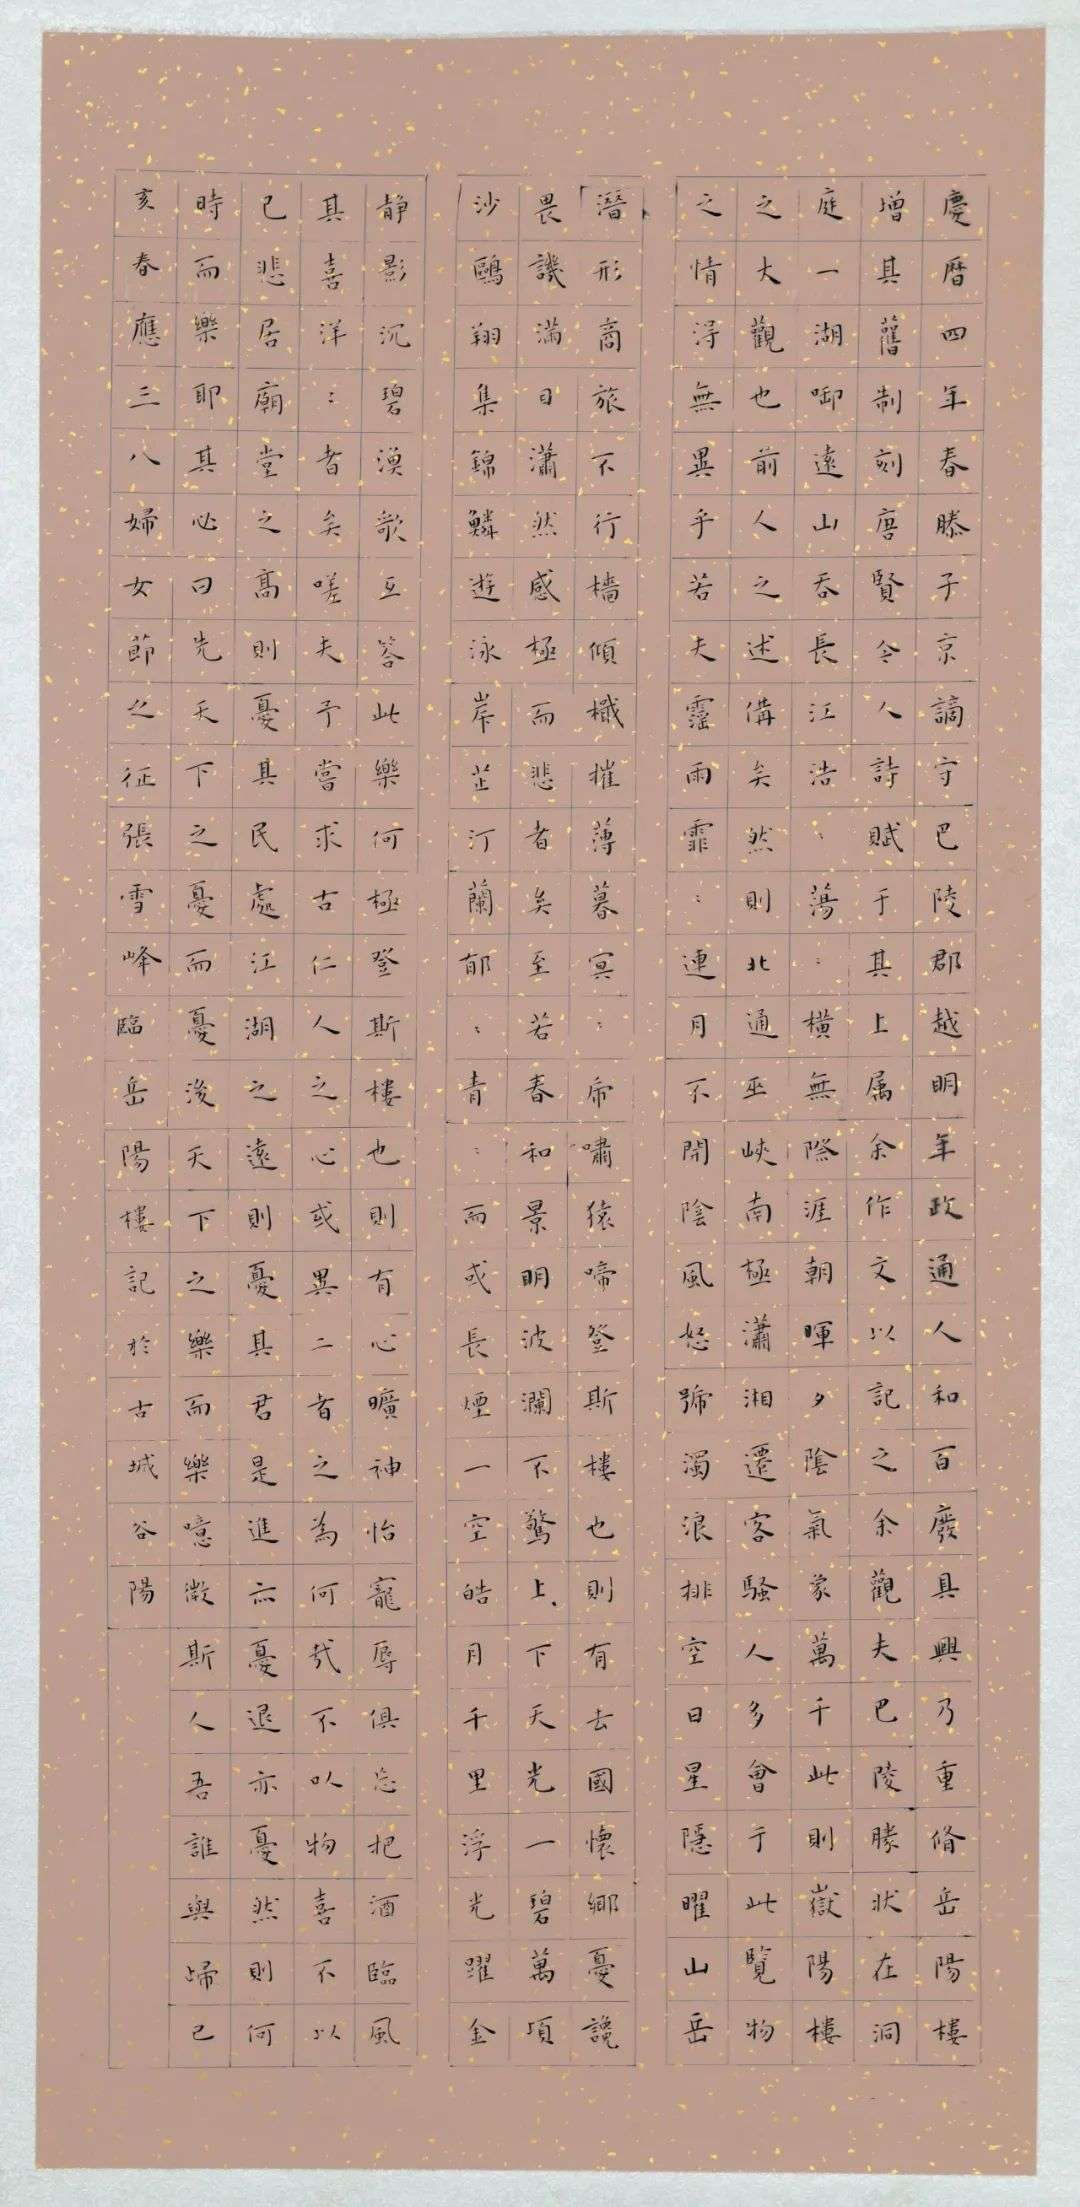 慶暦四年春滕子京謫守巴陵郡越明年政通人和百廢具興乃重脩岳陽樓
增其舊制刻唐賢令人詩賦于其上属余作文以記之余觀夫巴陵勝狀在洞
庭一湖啣遠山吞長江浩:蕩:橫無際涯朝暉夕陰氣象萬千此則嶽陽樓
之大觀也前人之述備矣然則北通巫峽南極瀟湘遷客騷人多會于此覽物
之情得無異乎若夫霪雨霏:連月不開陰風怒號濁浪排空日星隱曜山岳
潛形商旅不行檣傾檝摧薄暮冥:虎嘯猿啼登斯樓也則有去國懷鄉憂讒
畏譏滿目瀟然感極而悲者矣至若春和景明波瀾不驚上下天光一碧萬頃
沙鷗翔集錦鱗遊泳岸芷汀蘭郁:青:而或長煙一空皓月千里浮光躍金
静影沉碧漁歌互答此樂何極登斯樓也則有心曠神怡寵辱俱忘把酒臨風
其喜洋:者矣嗟夫予嘗求古仁人之心或異二者之為何哉不以物喜不以
己悲居廟堂之高則憂其民處江湖之遠則憂其君是進亦憂退亦憂然則何
時而樂耶其必曰先天下之憂而憂後天下之樂而樂噫微斯人吾誰與歸己
亥春應三八婦女節之征張雪峰臨岳陽樓記於古城谷陽